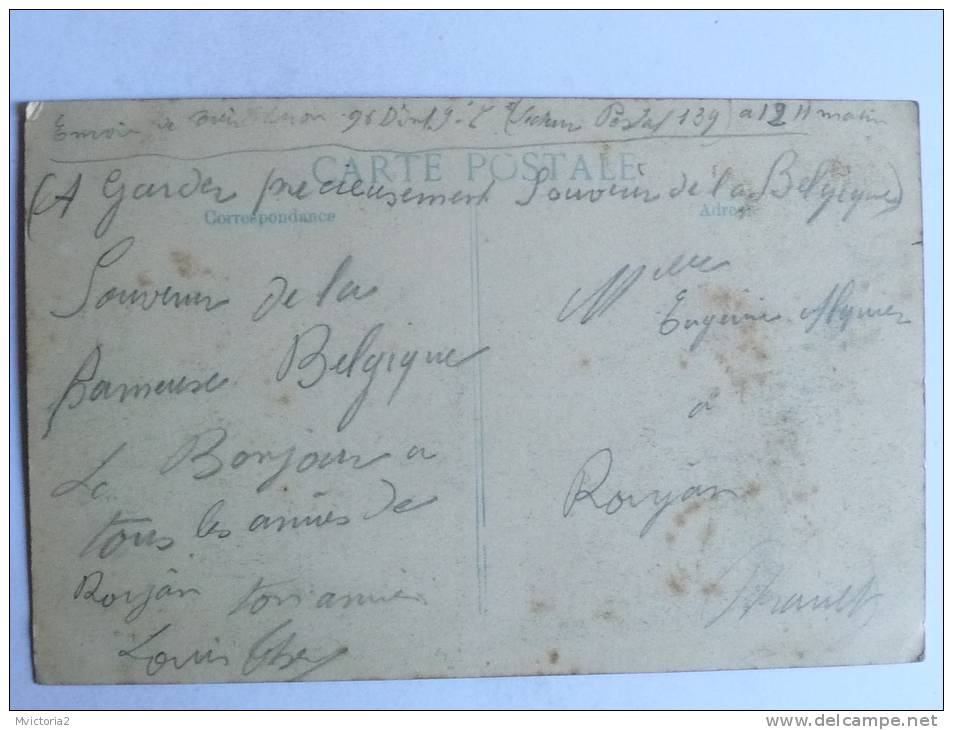 Envoi de 96 D'Inf. 9e C (Secteur Postal 139) a 12 H matin
CARTE POSTALE
(A Garder precieusement Souvenir de la Belgique)
Correspondance
Adresse
Souvenir de la
Fameuse Belgique
Le Bonjour a
tous les amies de
Roujan ton amie
Louis
Mlle
Eugenie
a
Roujan
Herault
Mvictoria2
www.delcampe.net